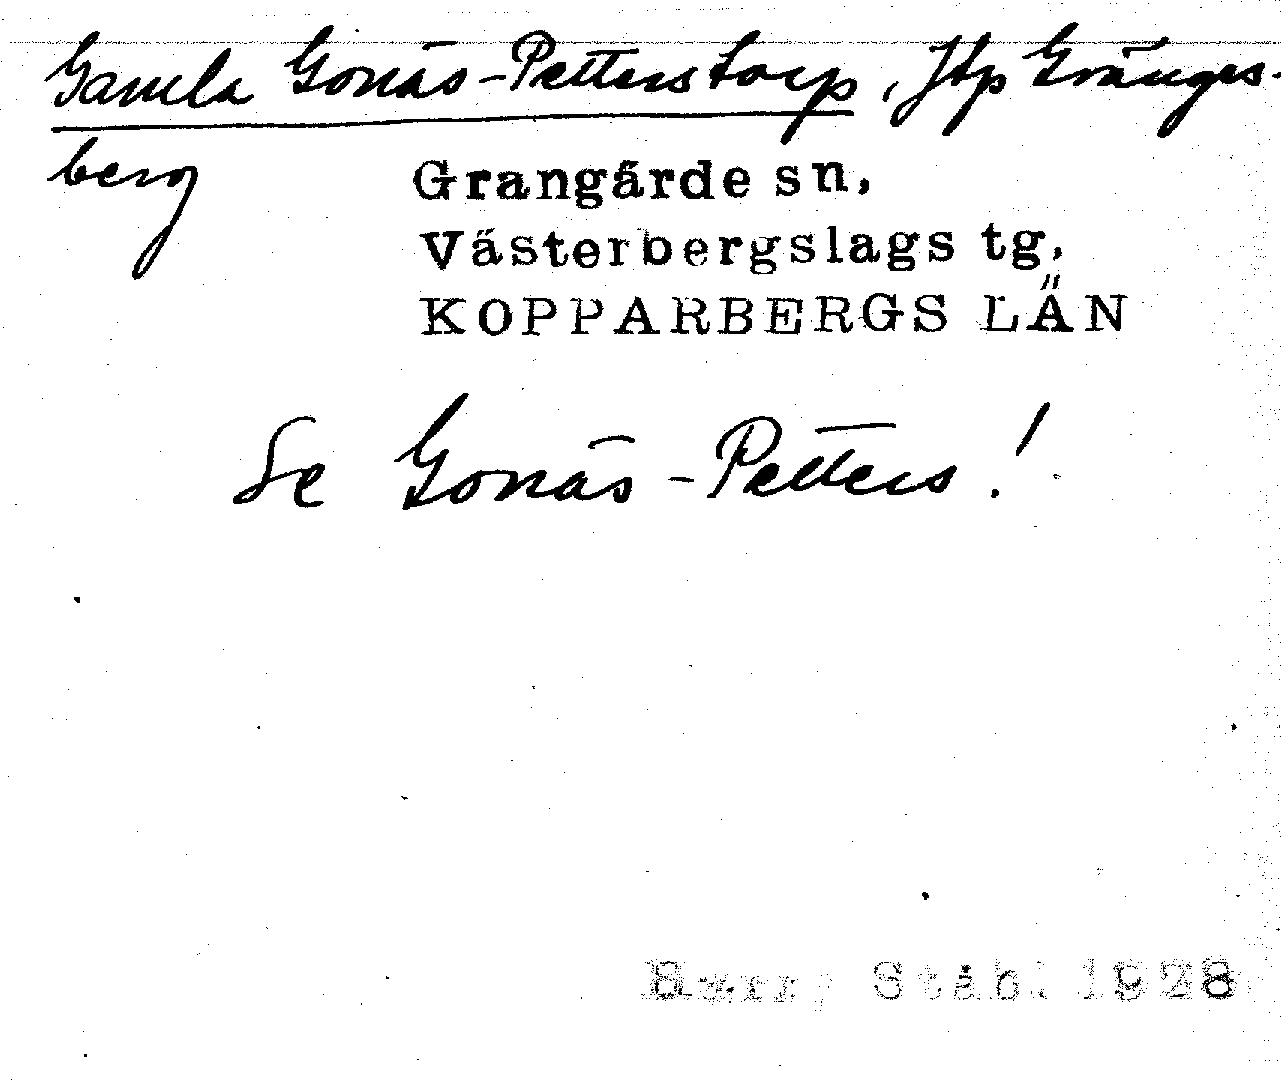 Gamla Gonäs-Petterstorp, Jtp Gränges-
berg
Grangärde sn,
Västerbergslags tg,
KOPPARBERGS LÄN
Se Gonäs-Petters!
Harry Ståhl 1928